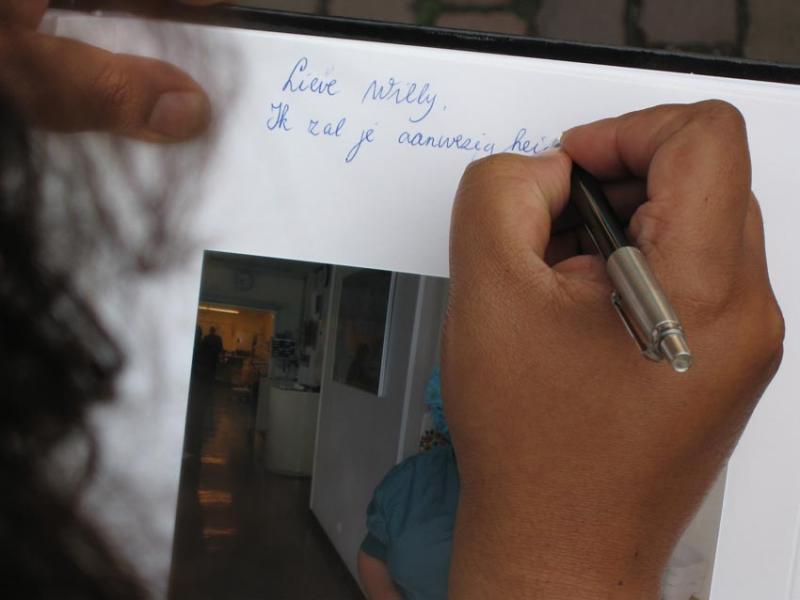 Lieve Willy,
Ik zal je aanwezig hei